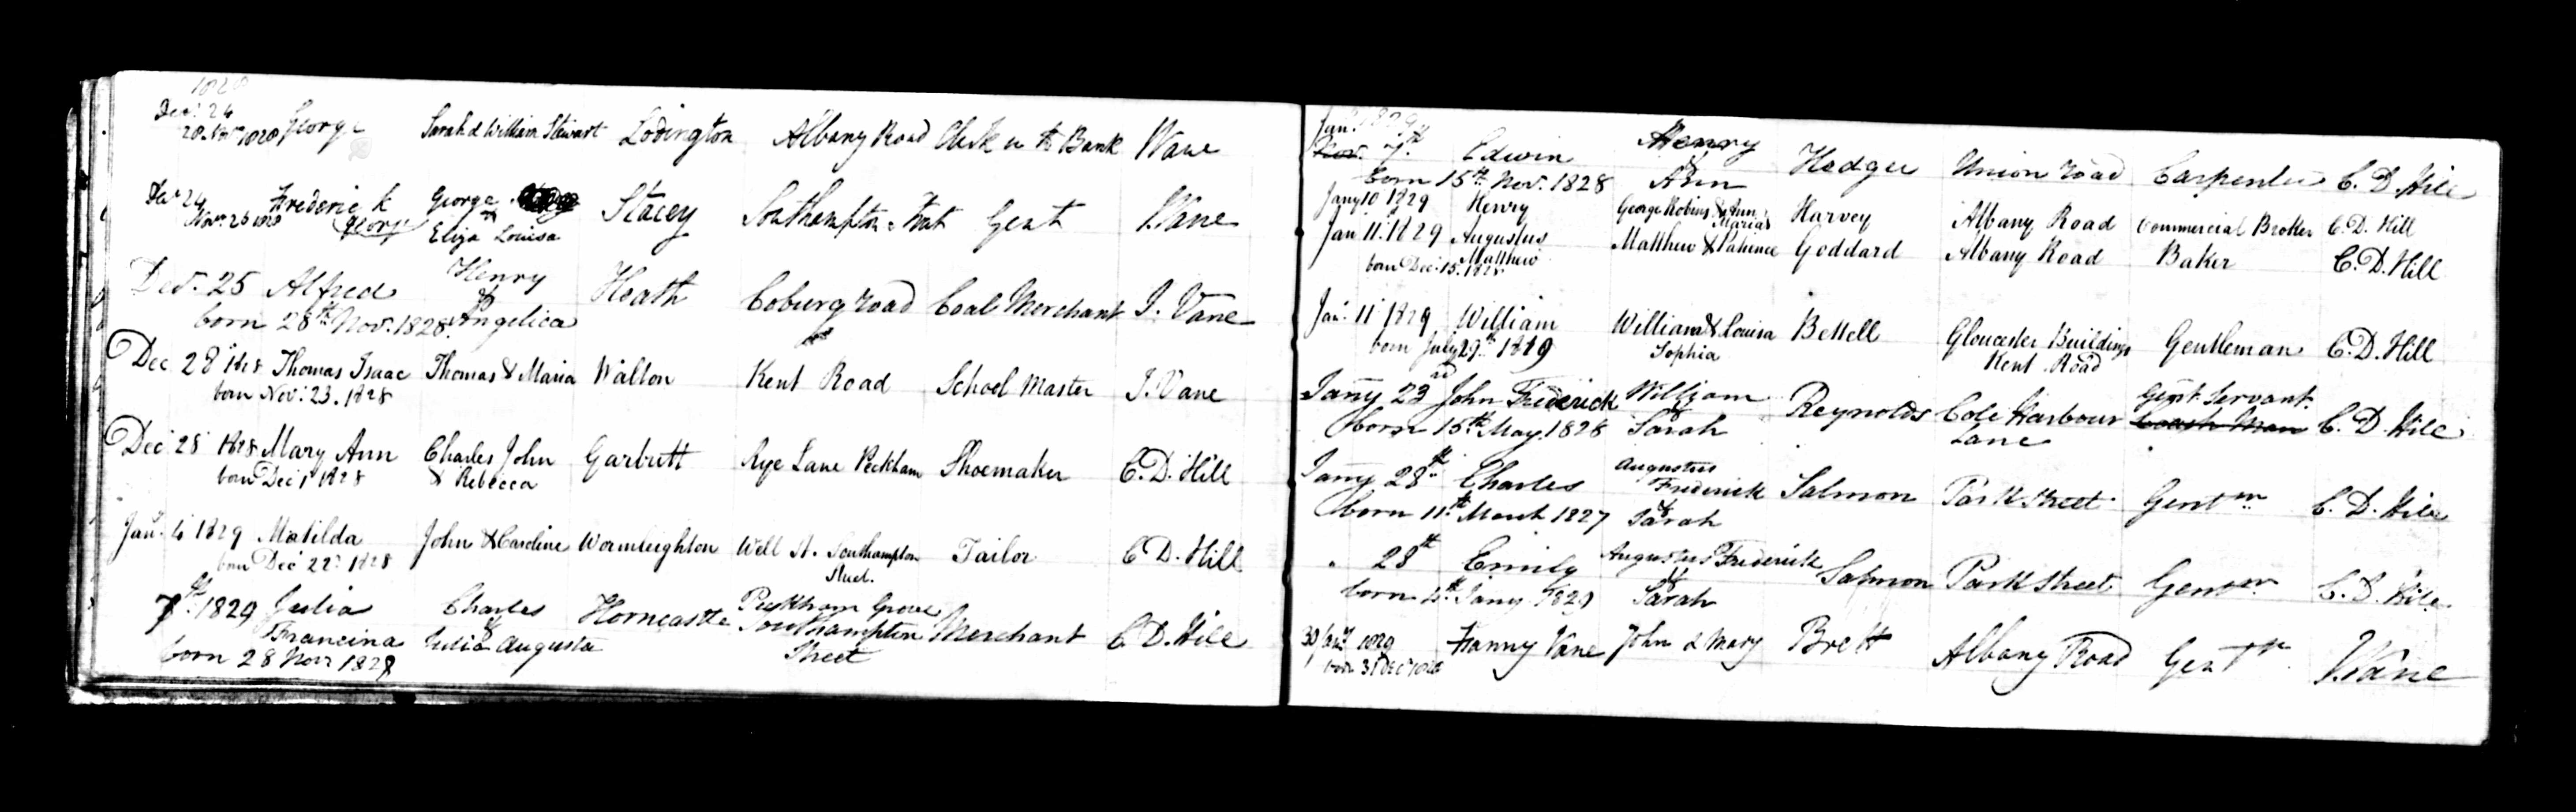 1828
Dec. 24 George Sarah & William Stewart Lodington Albany Road Clerk in the Bank J Vane
28 Novr 1828
Decr 24 Frederick George Stacey Southampton Street Gent J Vane
Novr 26 1828 George & Eliza Louisa
Decr. 25 Alfred Henry & Angelica Heath Coburg road Coal Merchant J. Vane
born 28th Novr. 1828
Dec 28 1828 Thomas Isaac Thomas & Maria Walton Kent Road School Master J. Vane
born Nov: 23. 1828
Dec 28 1828 Mary Ann Charles John Garbutt Rye Lane Peckham Shoemaker C. D. Hill
born Dec 1 1828 & Rebecca
Jany. 4 1829 Matilda John & Caroline Wormleighton Well St. Southampton Tailor C D. Hill
born Dec 22d 1828 Street.
7th. 1829 Julia Charles Horncastle Peckham Grove Merchant C. D. Hill
Francina & Julia Augusta Southampton
born 28 Novr 1828 Street
Jan. 1829
Nov. 7th. Edwin Henry & Ann Hedger Union road Carpenter C. D. Hill
born 15th Nov. 1828
Jany 10 1829 Henry George Robins & Ann Marias Harvey Albany Road Commercial Broker C. D. Hill
Jan 11. 1829 Augustus Matthew & Patience Goddard Albany Road Baker C. D. Hill
born Dec. 15. 1828 Matthew
Jan: 11 1829 William William & Louisa Bettell Gloucester Buildings Gentleman C. D. Hill
born July 29th 1819 Sophia Kent Road
Jany 23rd John Frederick William & Sarah Reynolds Cole Harbour Gent Servant. C. D. Hill
born 15th May. 1828 Lane Coach Man
Jany 28th Charles Augustus Frederick & Sarah Salmon Park Street Gentmn C. D. Hill
born 11th March 1827
" 28th Emily Augustus Frederick Salmon Park Street Gentmn C. D. Hill
born 4th Jany 1829 & Sarah
30 Jany 1829 Fanny Vane John & Mary Brett Albany Road Gentn J. Vane
born 31 Decr 1828